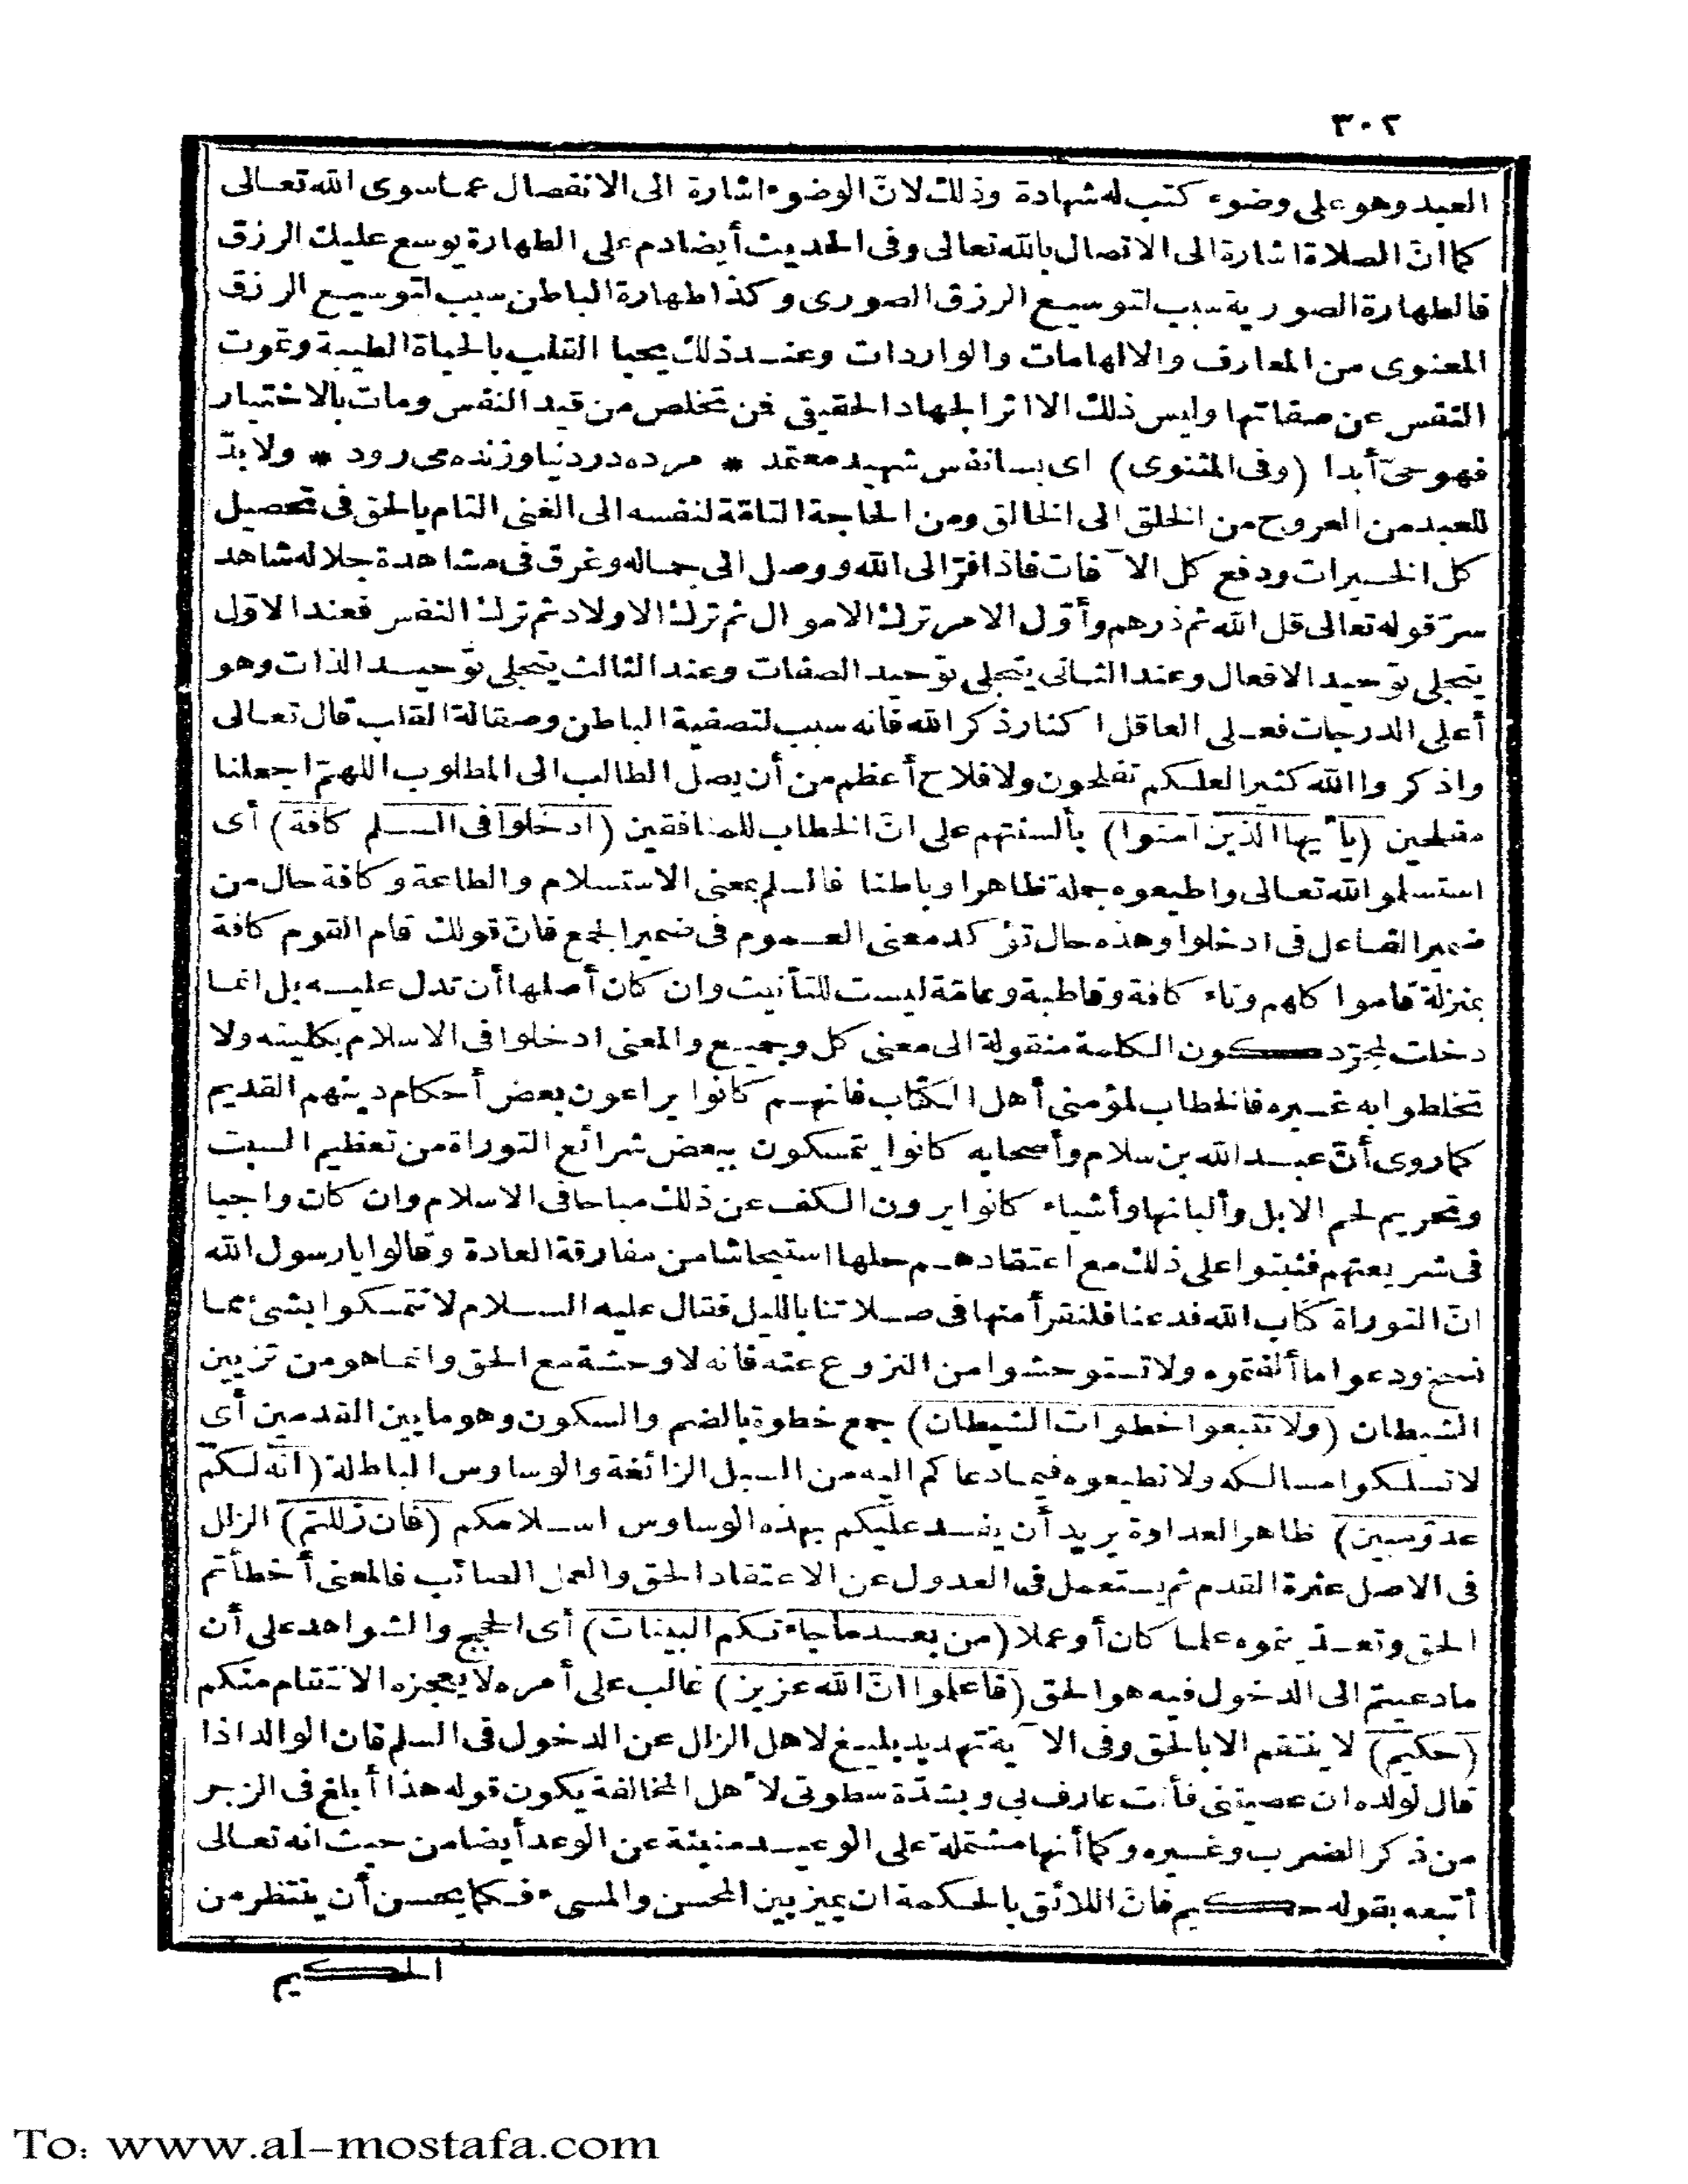 ٣٠٢
العبد وهو على وضوء كتب له شهادة وذلك لانّ الوضوء اشارة الى الانفصال عما سوى الله تعالى
كما انّ الصلاة اشارة الى الاتصال بالله تعالى وفى الحديث أيضا دم على الطهارة يوسع عليك الرزق
فالطهارة الصورية سبب لتوسيع الرزق الصورى وكذا طهارة الباطن سبب لتوسيع الرزق
المعنوى من المعارف والالهامات والواردات وعند ذلك يحيا القلب بالحياة الطيبة وتموت
النفس عن صفاتها وليس ذلك الا اثر الجهاد الحقيقى فمن تخلص من قيد النفس ومات بالاختيار
فهو حىّ أبدا (وفى المثنوى) اى بسا نفس شهيد معتمد * مرده در دنيا وزنده مى رود * ولا بدّ
للعبد من العروج من الخلق الى الخالق ومن الحاجة التامّة لنفسه الى الغنى التام بالحق فى تحصيل
كل الخيرات ودفع كل الآفات فاذا فرّ الى الله ووصل الى جماله وغرق فى مشاهدة جلاله شاهد
سرّ قوله تعالى قل الله ثم ذرهم وأوّل الامر ترك الاموال ثم ترك الاولاد ثم ترك النفس فعند الاوّل
يتجلى توحيد الافعال وعند الثانى يتجلى توحيد الصفات وعند الثالث يتجلى توحيد الذات وهو
أعلى الدرجات فعلى العاقل اكثار ذكر الله فانه سبب لتصفية الباطن وصقالة القلب قال تعالى
واذكروا الله كثيرا لعلكم تفلحون ولا فلاح أعظم من أن يصل الطالب الى المطلوب اللهمّ اجعلنا
مفلحين (يا أيها الذين آمنوا) بألسنتهم على انّ الخطاب للمنافقين (ادخلوا فى السلم كافة) أى
استسلموا لله تعالى واطيعوه جملة ظاهرا وباطنا فالسلم بمعنى الاستسلام والطاعة وكافة حال من
ضمير الفاعل فى ادخلوا وهذه حال تؤكد معنى العموم فى ضمير الجمع فانّ قولك قام القوم كافة
بمنزلة قاموا كلهم وتاء كافة وقاطبة وعامّة ليست للتأنيث وان كان أصلها أن تدل عليه بل انما
دخلت لمجرّد كون الكلمة منقولة الى معنى كل وجميع والمعنى ادخلوا فى الاسلام بكليته ولا
تخلطوا به غيره فالخطاب لمؤمنى أهل الكتاب فانهم كانوا يراعون بعض أحكام دينهم القديم
كما روى أنّ عبد الله بن سلام وأصحابه كانوا يتمسكون ببعض شرائع التوراة من تعظيم السبت
وتحريم لحم الابل وألبانها وأشياء كانوا يرون الكف عن ذلك مباحا فى الاسلام وان كان واجبا
فى شريعتهم فثبتوا على ذلك مع اعتقادهم حلها استيحاشا من مفارقة العادة وقالوا يا رسول الله
انّ التوراة كتاب الله فدعنا فلنقرأ منها فى صلاتنا بالليل فقال عليه السلام لا تتمسكوا بشئ مما
نسخ ودعوا ما ألفتموه ولا تستوحشوا من النزوع عنه فانه لا وحشة مع الحق وانما هو من تزيين
الشيطان (ولا تتبعوا خطوات الشيطان) جمع خطوة بالضم والسكون وهو ما بين القدمين أى
لا تسلكوا مسالكه ولا تطيعوه فيما دعاكم اليه من السبل الزائغة والوساوس الباطلة (انه لكم
عدوّ مبين) ظاهر العداوة يريد أن يفسد عليكم بهذه الوساوس اسلامكم (فان زللتم) الزلل
فى الاصل عثرة القدم ثم يستعمل فى العدول عن الاعتقاد الحق والعمل الصائب فالمعنى أخطأتم
الحق وتعديتموه علما كان أو عملا (من بعد ما جاءتكم البينات) أى الحجج والشواهد على أن
ما دعيتم الى الدخول فيه هو الحق (فاعلموا انّ الله عزيز) غالب على أمره لا يعجزه الانتقام منكم
(حكيم) لا ينتقم الا بالحق وفى الآية تهديد بليغ لاهل الزلل عن الدخول فى السلم فان الوالد اذا
قال لولده ان عصيتنى فأنت عارف بى وبشدّة سطوتى لأهل المخالفة يكون قوله هذا أبلغ فى الزجر
من ذكر الضرب وغيره وكما أنها مشتملة على الوعيد منبئة عن الوعد أيضا من حيث انه تعالى
أتبعه بقوله حكيم فانّ اللائق بالحكمة ان يميز بين المحسن والمسىء فكما يحسن أن ينتظر من
الحكيم
To: www.al-mostafa.com